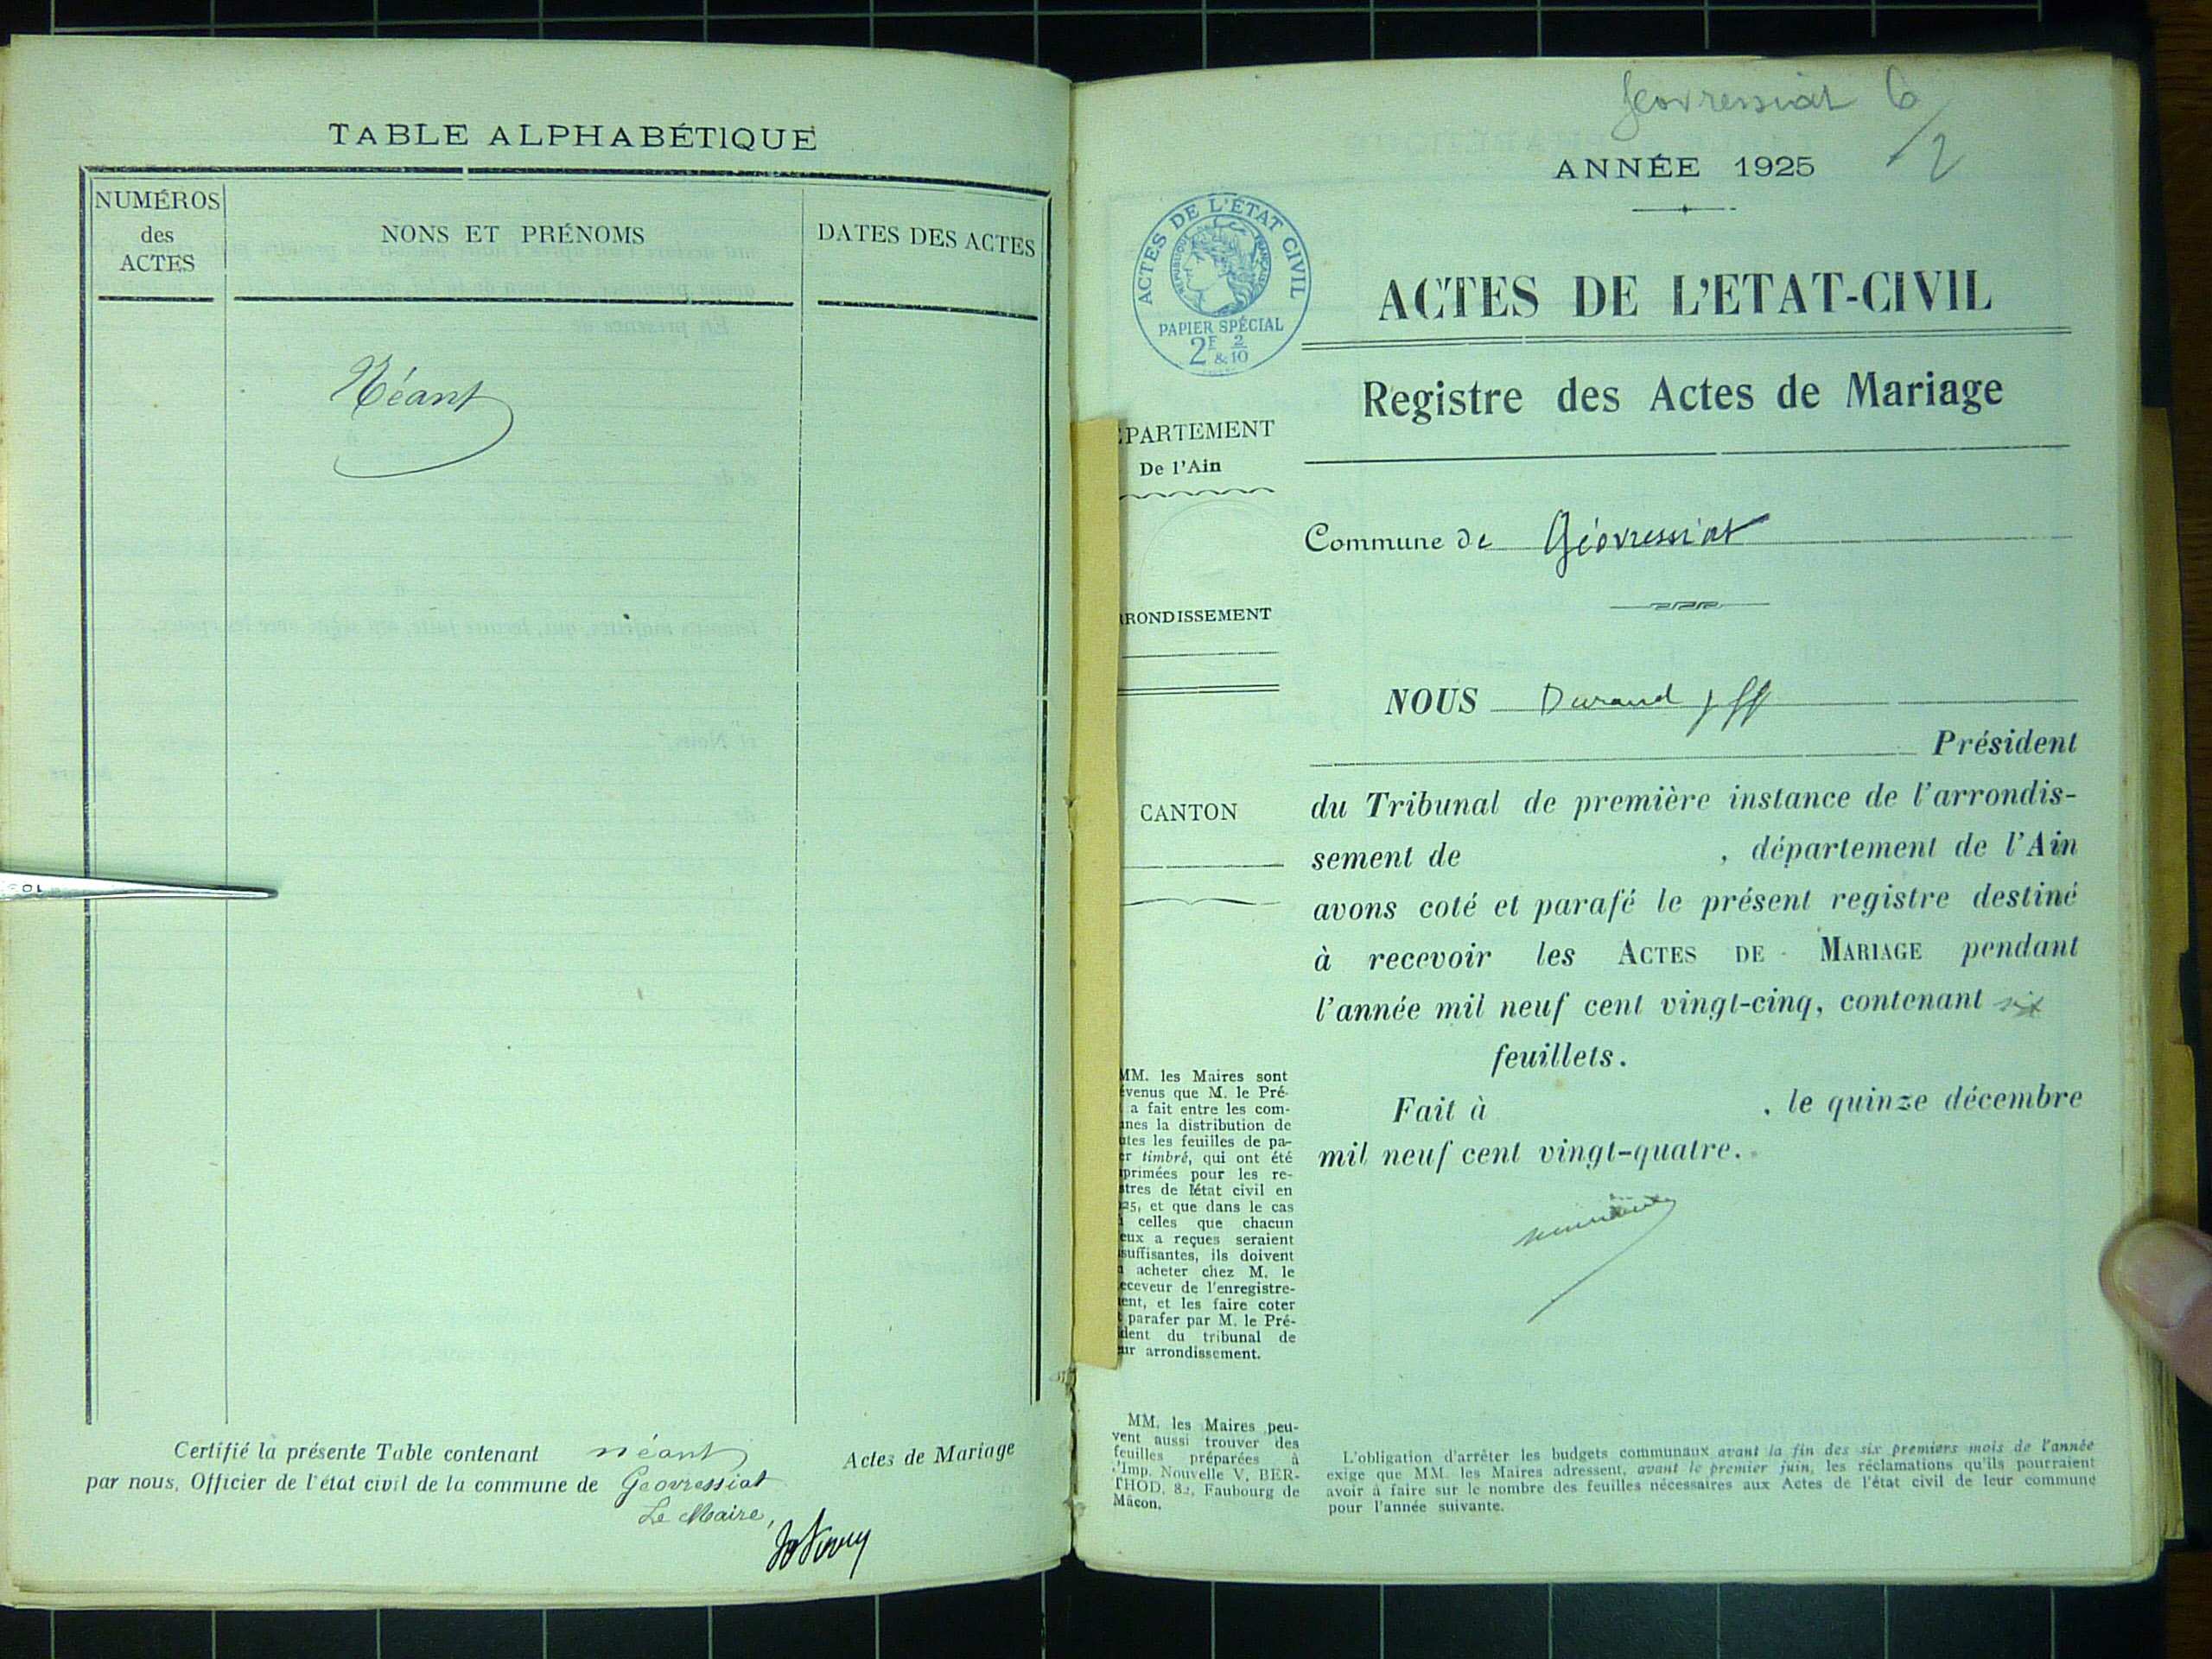 TABLE ALPHABÉTIQUE
NUMÉROS
des
ACTES
NONS ET PRÉNOMS
DATES DES ACTES
Néant
Certifié la présente Table contenant néant Actes de Mariage
par nous, Officier de l'état civil de la commune de Géovressiat
Le Maire,
Geovressiat 6
/2
ANNÉE 1925
ACTES DE L'ÉTAT CIVIL
RÉPUBLIQUE FRANÇAISE
PAPIER SPÉCIAL
2F & 2/10
ACTES DE L'ETAT-CIVIL
Registre des Actes de Mariage
ÉPARTEMENT
De l'Ain
Commune de Géovressiat
RRONDISSEMENT
NOUS Durand
Président
CANTON
du Tribunal de première instance de l'arrondis-
sement de , département de l'Ain
avons coté et parafé le présent registre destiné
à recevoir les ACTES DE MARIAGE pendant
l'année mil neuf cent vingt-cinq, contenant six
feuillets.
Fait à , le quinze décembre
mil neuf cent vingt-quatre.
MM. les Maires sont
évenus que M. le Pré-
a fait entre les com-
unes la distribution de
utes les feuilles de pa-
er timbré, qui ont été
primées pour les re-
stres de l'état civil en
25, et que dans le cas
celles que chacun
eux a reçues seraient
suffisantes, ils doivent
acheter chez M. le
eceveur de l'enregistre-
ent, et les faire coter
parafer par M. le Pré-
dent du tribunal de
ur arrondissement.
MM. les Maires peu-
vent aussi trouver des
feuilles préparées à
l'Imp. Nouvelle V. BER-
THOD, 82, Faubourg de
Mâcon.
L'obligation d'arrêter les budgets communaux avant la fin des six premiers mois de l'année
exige que MM. les Maires adressent, avant le premier juin, les réclamations qu'ils pourraient
avoir à faire sur le nombre des feuilles nécessaires aux Actes de l'état civil de leur commune
pour l'année suivante.